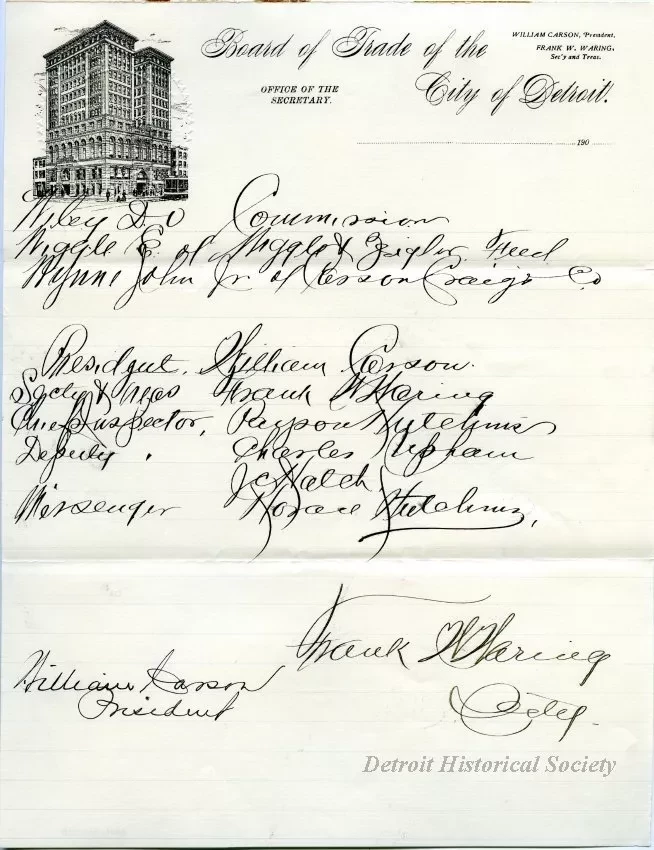 WILLIAM CARSON, President.
FRANK W. WARING,
Sec'y and Treas.
Board of Trade of the
City of Detroit.
OFFICE OF THE
SECRETARY.
190
Wiley D O Commission
Wiggle E. of Wiggle & Zigler Feed
Wynne John Jr of Carson Craig & Co
President. William Carson.
Secty & Treas Frank W Waring
Chief Inspector, Payson Hutchins
Deputy " Charles Upham
J C Hatch
Messenger Horace Hutchins,
Frank W Waring
Secty.
William Carson
President
Detroit Historical Society